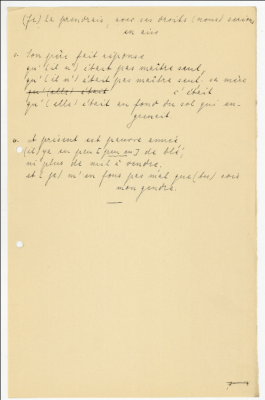 (Je) la prendrais, avec ses droits (nous) serions
en aise
Son père fait réponse
qu'(il n') était pas maître seul,
qu'(il n') était pas maître seul: sa mère
qu'(elle) était c'était
qu'(elle) était en fond du sol qui en-
et présent est pauvre année
(il) ya eu peu [peu eu] de blé,
ni plus de mil à vendre,
et (je) m'en fous pas mal que (tu) sois
mon gendre.